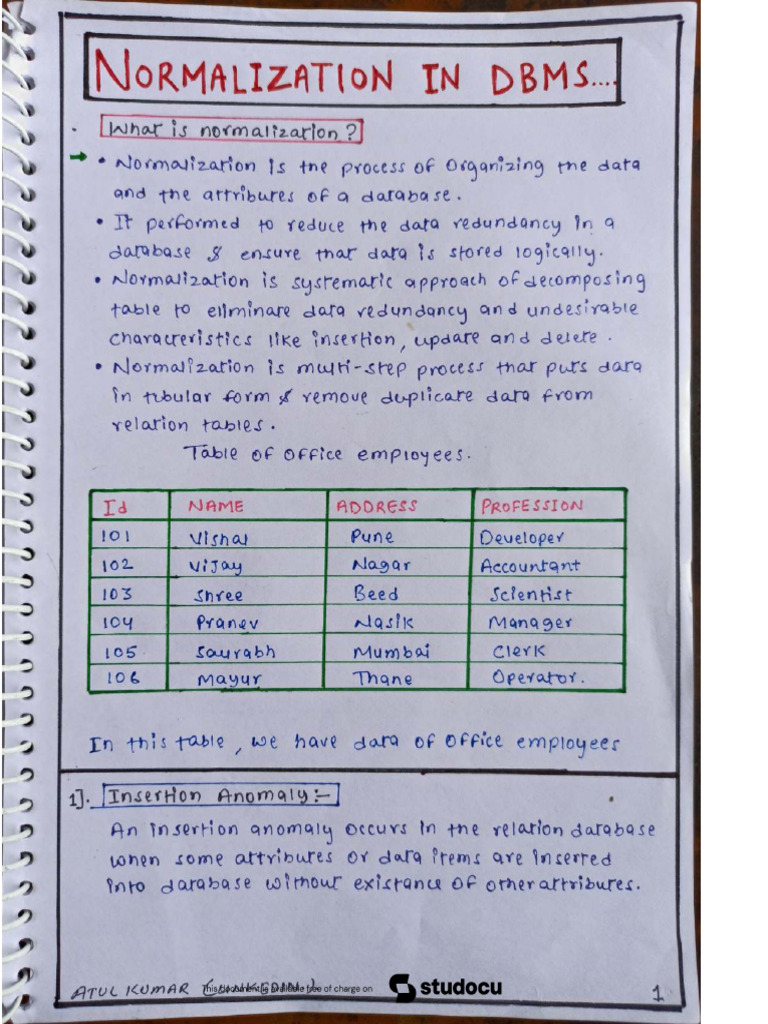 NORMALIZATION IN DBMS....
What is normalization?
• Normalization is the process of organizing the data
and the attributes of a database.
• It performed to reduce the data redundancy in a
database & ensure that data is stored logically.
• Normalization is systematic approach of decomposing
table to eliminare data redundancy and undesirable
characteristics like insertion, update and delete.
• Normalization is multi-step process that puts data
in tubular form & remove duplicate data from
relation tables.
Table of office employees.
Id NAME ADDRESS PROFESSION
101 Vishal Pune Developer
102 Vijay Nagar Accountant
103 Shree Beed Scientist
104 Pranev Nasik Manager
105 Saurabh Mumbai Clerk
106 Mayur Thane Operator.
In this table, we have data of office employees
1]. Insertion Anomaly:-
An insertion anomaly occurs in the relation database
when some attributes or data items are inserted
into database without existance of other attributes.
ATUL KUMAR (LINKEDIN)
This document is available free of charge on
studocu
1